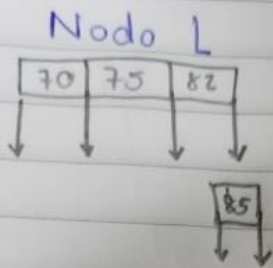 Nodo L
70 75 82
85